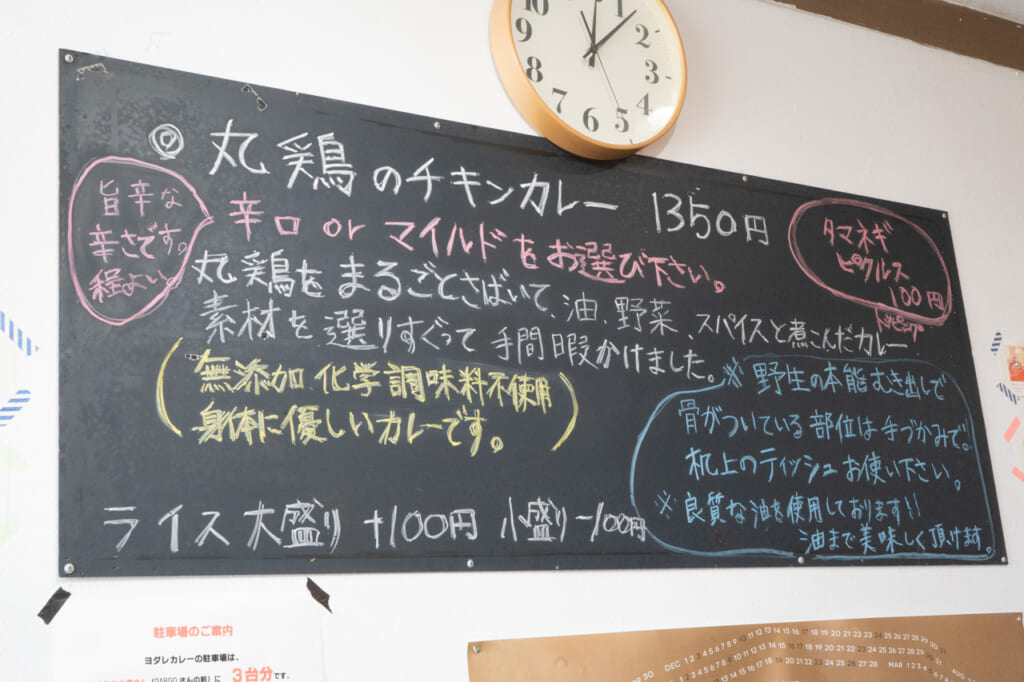 ◎丸鶏のチキンカレー 1350円
旨辛な
辛さです。
程よい
辛口 or マイルドをお選び下さい。
タマネギ
ピクルス
100円
トッピング
丸鶏をまるごとさばいて、油、野菜、スパイスと煮こんだカレー
素材を選りすぐって手間暇かけました。
(無添加 化学調味料不使用
身体に優しいカレーです。)
※野生の本能むき出しで
骨がついている部位は手づかみで。
机上のティッシュお使い下さい。
※良質な油を使用しております!!
油まで美味しく頂けます。
ライス 大盛り +100円 小盛り -100円
10 1 2 3 4 5 6 7 8 9
駐車場のご案内
ヨダレカレーの駐車場は、
3台分です。